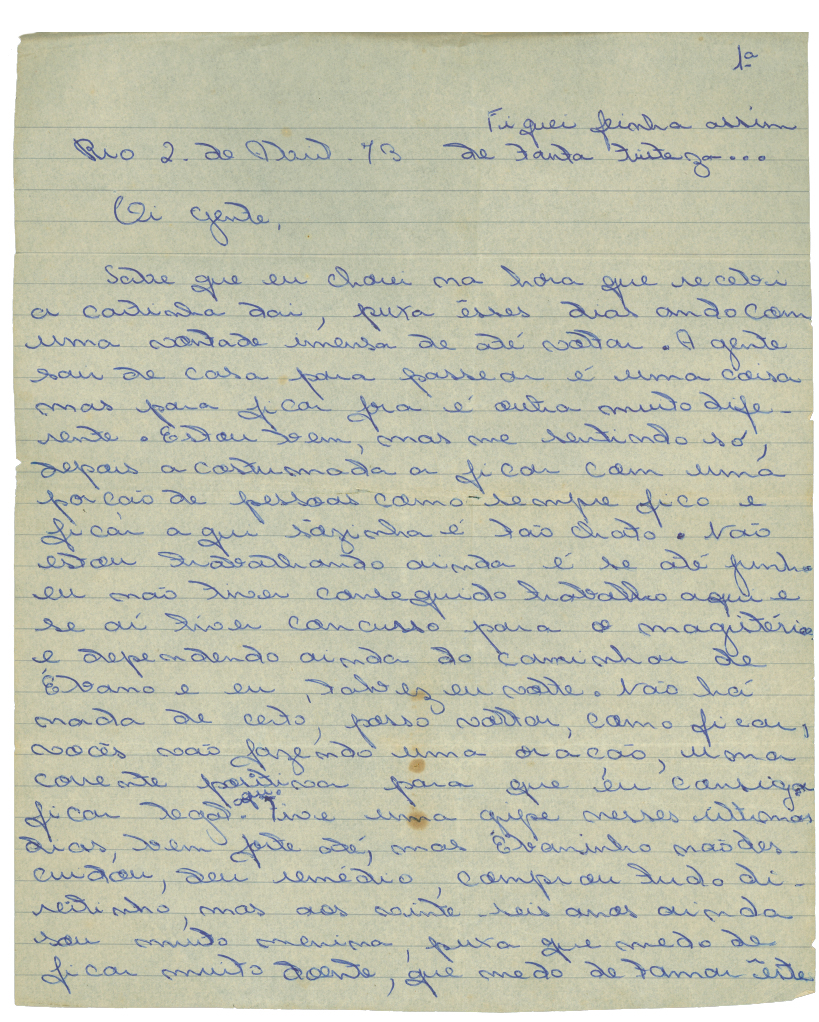 1ª
Fiquei feinha assim
Rio 2. de Abril. 73 de tanta tristeza...
Oi gente,
Sabe que eu chorei na hora que recebi
a cartinha daí, puxa êsses dias ando com
uma vontade imensa de até voltar. A gente
sair de casa para passear é uma coisa
mas para ficar fora é outra muito dife-
rente. Estou bem, mas me sentindo só,
depois acostumada a ficar com uma
porção de pessoas como sempre fico e
ficar aqui sòzinha é tão chato. Não
estou trabalhando ainda é se até junho
eu não tiver conseguido trabalho aqui e
se aí tiver concurso para o magistério
e dependendo ainda do caminhar de
Ébano e eu, talvez eu volte. Não há
nada de certo, posso voltar, como ficar,
vocês vão fazendo uma oração, uma
corrente positiva para que eu consiga
ficar legal aqui. Tive uma gripe nesses últimos
dias, bem forte até, mas Ébaninho não des-
cuidou, deu remédio, comprou tudo di-
reitinho, mas aos vinte seis anos ainda
sou muito menina, puxa que medo de
ficar muito doente, que medo de tomar êste